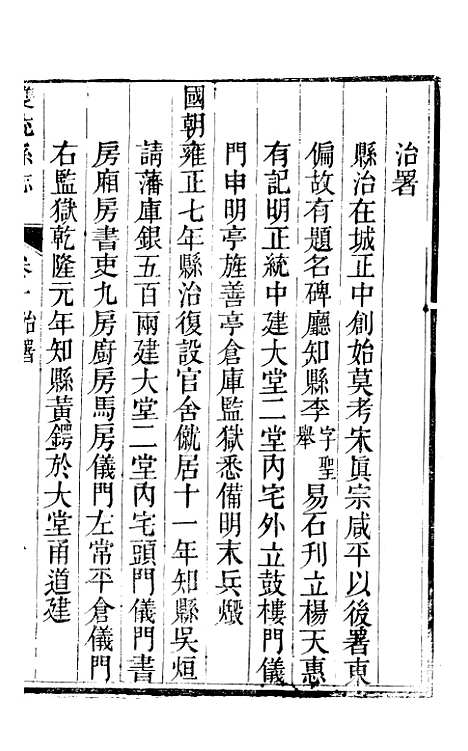 治署
縣治在城正中創始莫考宋眞宗咸平以後署東
偏故有題名碑廳知縣李字聖舉易石刋立楊天惠
有記明正統中建大堂二堂內宅外立鼓樓門儀
門申明亭旌善亭倉庫監獄悉備明末兵燬
國朝雍正七年縣治復設官舍僦居十一年知縣吳烜
請藩庫銀五百兩建大堂二堂內宅頭門儀門書
房廂房書吏九房廚房馬房儀門左常平倉儀門
右監獄乾隆元年知縣黃鍔於大堂甬道建
雙流縣志 卷 治署